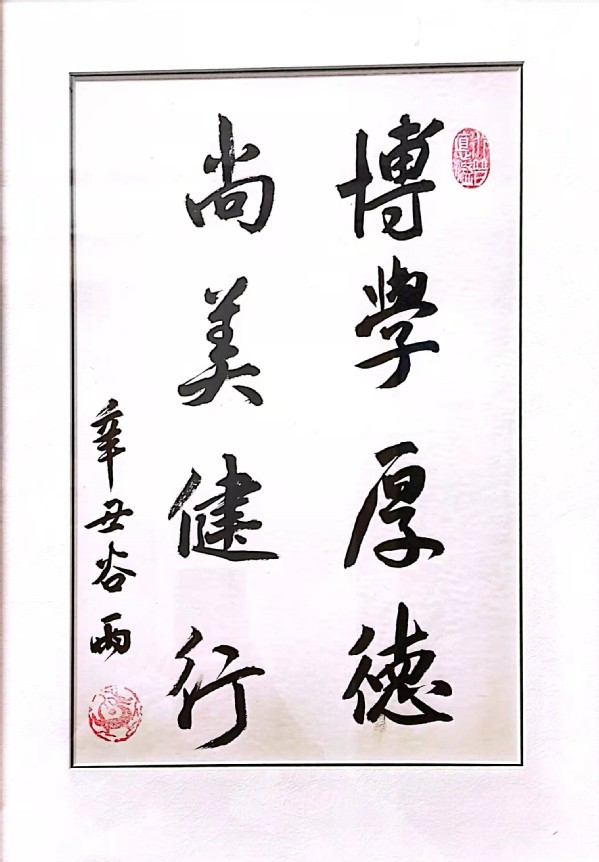 博學厚德
尚美健行
辛丑谷雨